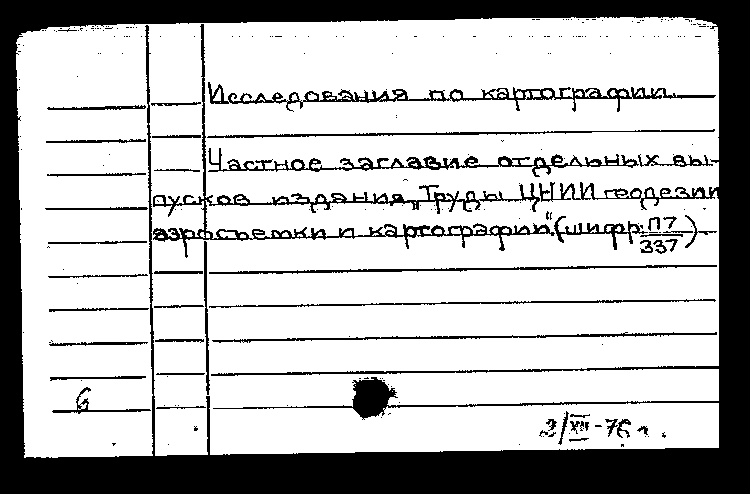 Исследования по картографии.
Частное заглавие отдельных вы-
пусков издания „Труды ЦНИИ геодезии
аэросъемки и картографии“. (шифр: П7/337).
6
2/XII-76 г.